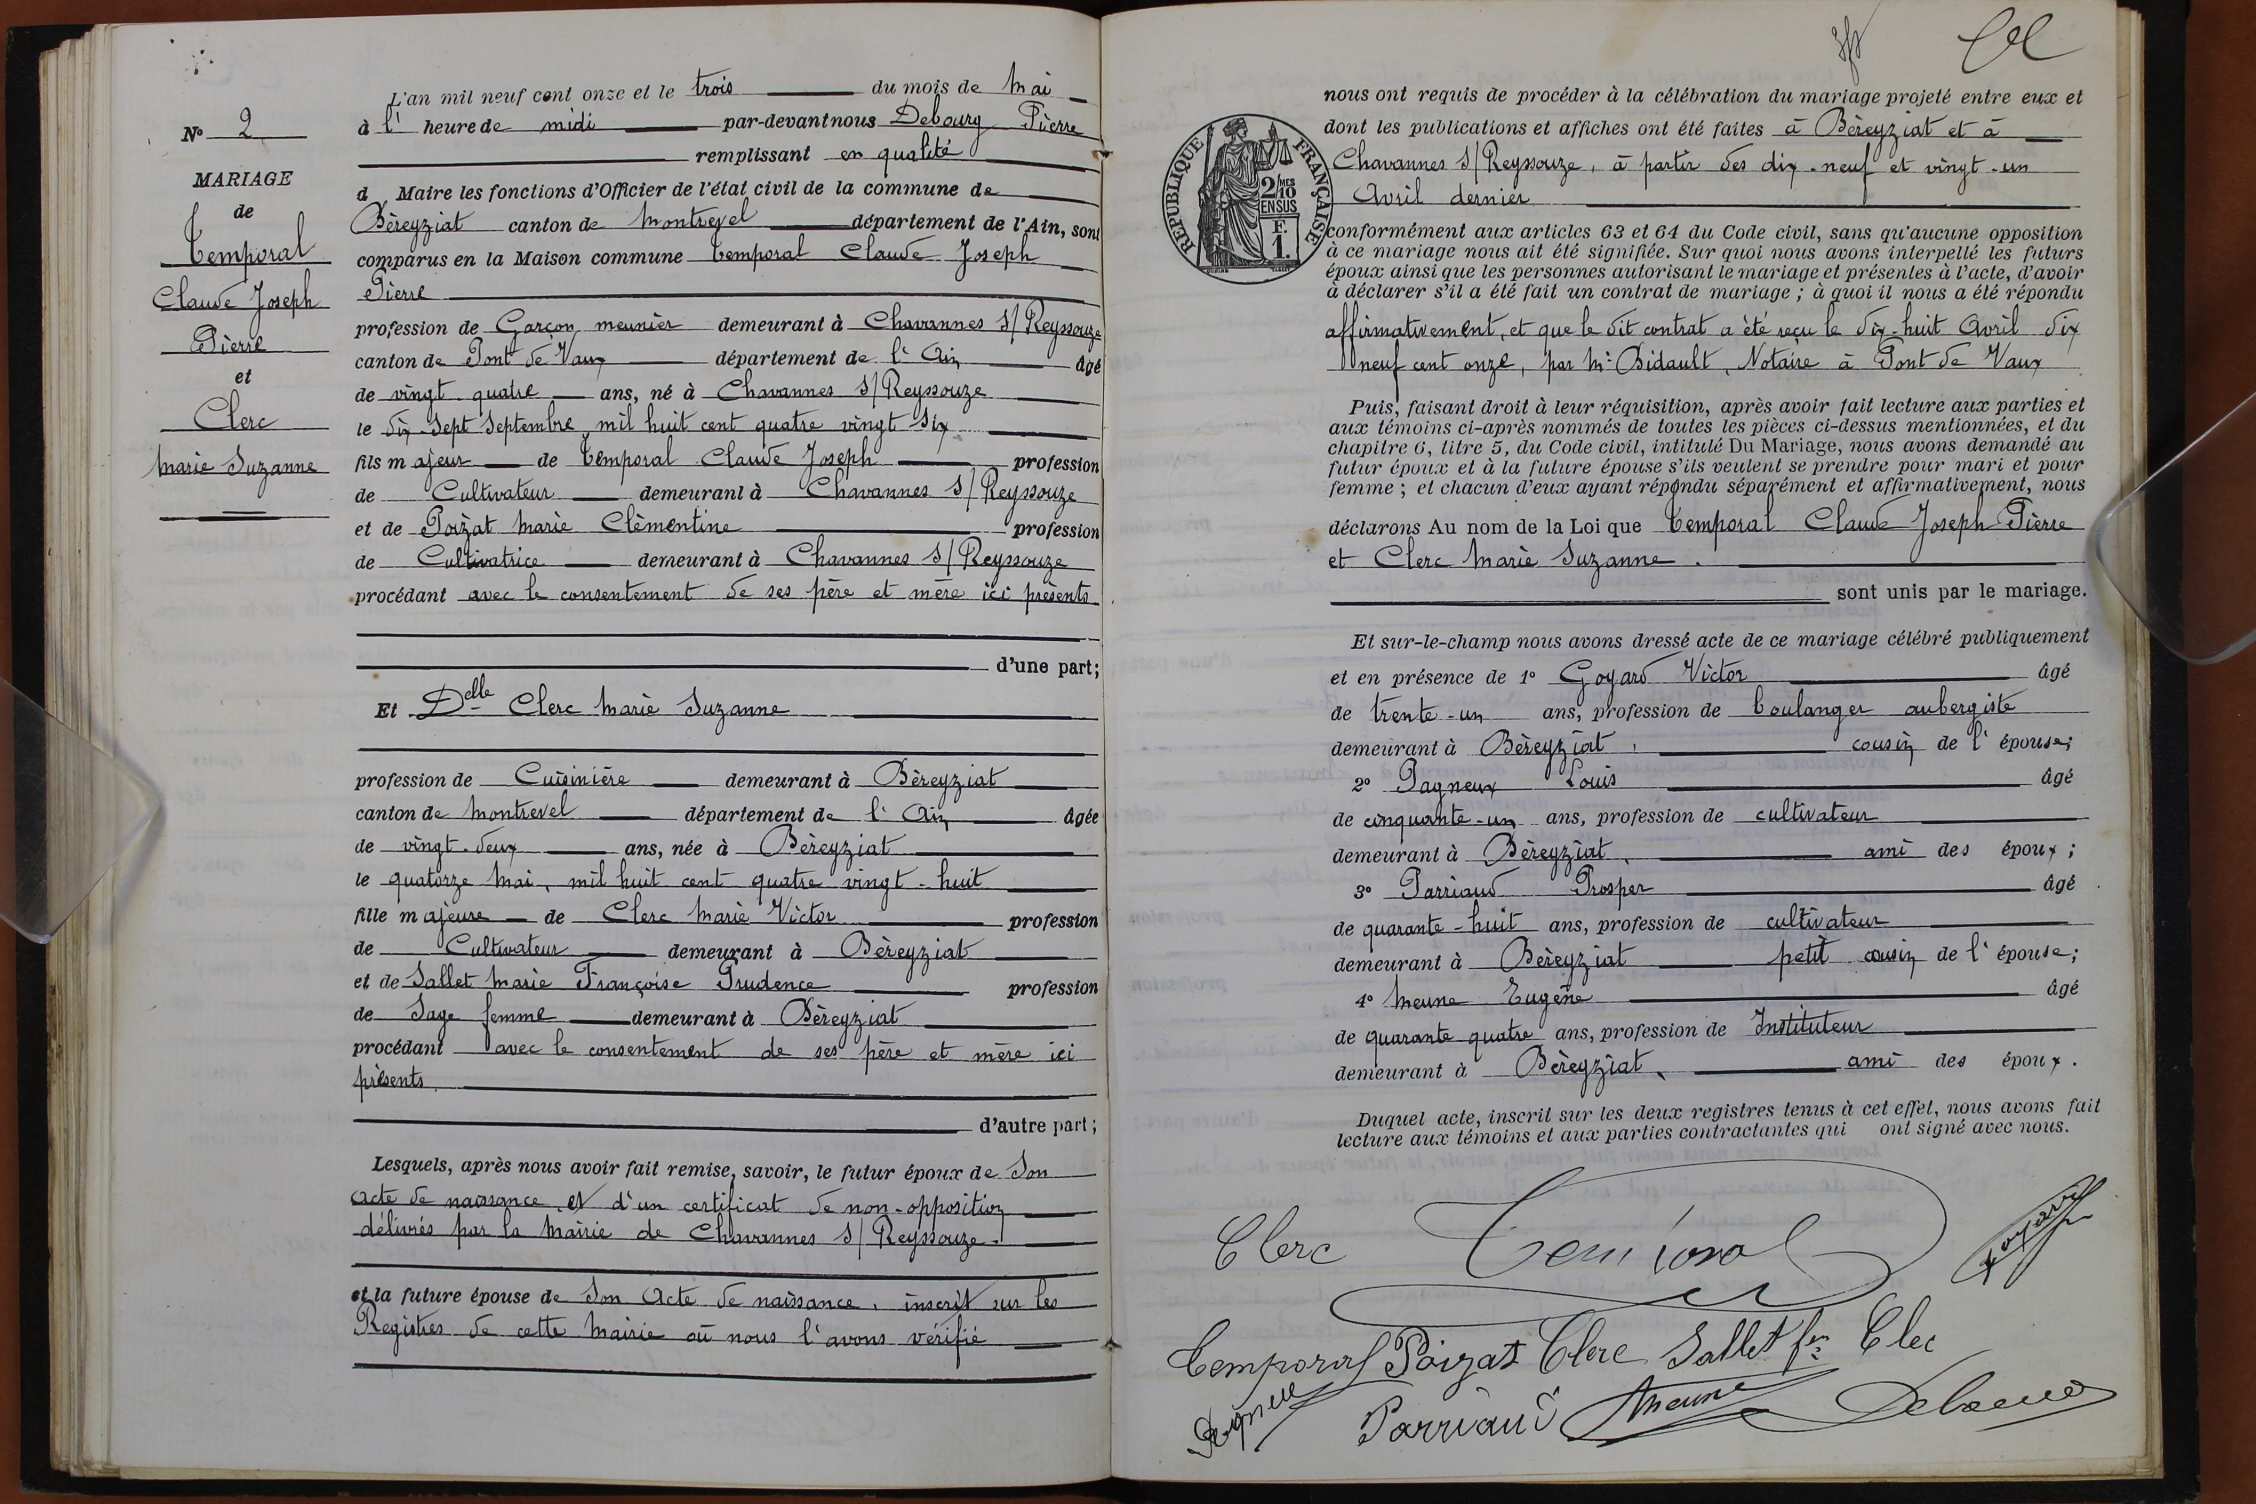 N° 2
MARIAGE
de
Temporal
Claude Joseph
Pierre
et
Clerc
Marie Suzanne
L'an mil neuf cent onze et le trois du mois de Mai
à l' heure de midi par-devant nous Debourg Pierre
remplissant en qualité
d Maire les fonctions d'Officier de l'état civil de la commune de
Béreyziat canton de Montrevel département de l'Ain, sont
comparus en la Maison commune Temporal Claude Joseph
Pierre
profession de Garçon meunier demeurant à Chavannes s/Reyssouze
canton de Pont de Vaux département de l'Ain âgé
de vingt quatre ans, né à Chavannes s/Reyssouze
le dix-sept Septembre mil huit cent quatre vingt six
fils majeur de Temporal Claude Joseph profession
de Cultivateur demeurant à Chavannes s/Reyssouze
et de Poizat Marie Clémentine profession
de Cultivatrice demeurant à Chavannes s/Reyssouze
procédant avec le consentement de ses père et mère ici présents
d'une part;
Et Delle Clerc Marie Suzanne
profession de Cuisinière demeurant à Béreyziat
canton de Montrevel département de l'Ain âgée
de vingt-deux ans, née à Béreyziat
le quatorze Mai, mil huit cent quatre vingt-huit
fille majeure de Clerc Marie Victor profession
de Cultivateur demeurant à Béreyziat
et de Sallet Marie Françoise Prudence profession
de Sage femme demeurant à Béreyziat
procédant avec le consentement de ses père et mère ici
présents
d'autre part;
Lesquels, après nous avoir fait remise, savoir, le futur époux de Son
acte de naissance et d'un certificat de non-opposition
délivrés par la Mairie de Chavannes s/Reyssouze.
et la future épouse de Son Acte de naissance, inscrit sur les
Registres de cette Mairie où nous l'avons vérifié
RÉPUBLIQUE FRANÇAISE
2/10MES
EN SUS
F.
1.
nous ont requis de procéder à la célébration du mariage projeté entre eux et
dont les publications et affiches ont été faites à Béreyziat et à
Chavannes s/Reyssouze, à partir des dix-neuf et vingt-un
Avril dernier
conformément aux articles 63 et 64 du Code civil, sans qu'aucune opposition
à ce mariage nous ait été signifiée. Sur quoi nous avons interpellé les futurs
époux ainsi que les personnes autorisant le mariage et présentes à l'acte, d'avoir
à déclarer s'il a été fait un contrat de mariage; à quoi il nous a été répondu
affirmativement, et que le dit contrat a été reçu le dix-huit Avril dix
neuf cent onze, par Me Bidault, Notaire à Pont de Vaux
Puis, faisant droit à leur réquisition, après avoir fait lecture aux parties et
aux témoins ci-après nommés de toutes les pièces ci-dessus mentionnées, et du
chapitre 6, titre 5, du Code civil, intitulé Du Mariage, nous avons demandé au
futur époux et à la future épouse s'ils veulent se prendre pour mari et pour
femme; et chacun d'eux ayant répondu séparément et affirmativement, nous
déclarons Au nom de la Loi que Temporal Claude Joseph Pierre
et Clerc Marie Suzanne.
sont unis par le mariage.
Et sur-le-champ nous avons dressé acte de ce mariage célébré publiquement
et en présence de 1° Goyard Victor âgé
de trente-un ans, profession de boulanger aubergiste
demeurant à Béreyziat, cousin de l'épouse;
2° Pagneux Louis âgé
de cinquante-un ans, profession de cultivateur
demeurant à Béreyziat, ami des époux;
3° Parriaud Prosper âgé
de quarante-huit ans, profession de cultivateur
demeurant à Béreyziat petit cousin de l'épouse;
4° Meune Eugène âgé
de quarante quatre ans, profession de Instituteur
demeurant à Béreyziat, ami des époux.
Duquel acte, inscrit sur les deux registres tenus à cet effet, nous avons fait
lecture aux témoins et aux parties contractantes qui ont signé avec nous.
Clerc Temporal Goyard
Temporal Poizat Clerc Sallet fe Clec
Pagneux Parriaud Meune Debourg